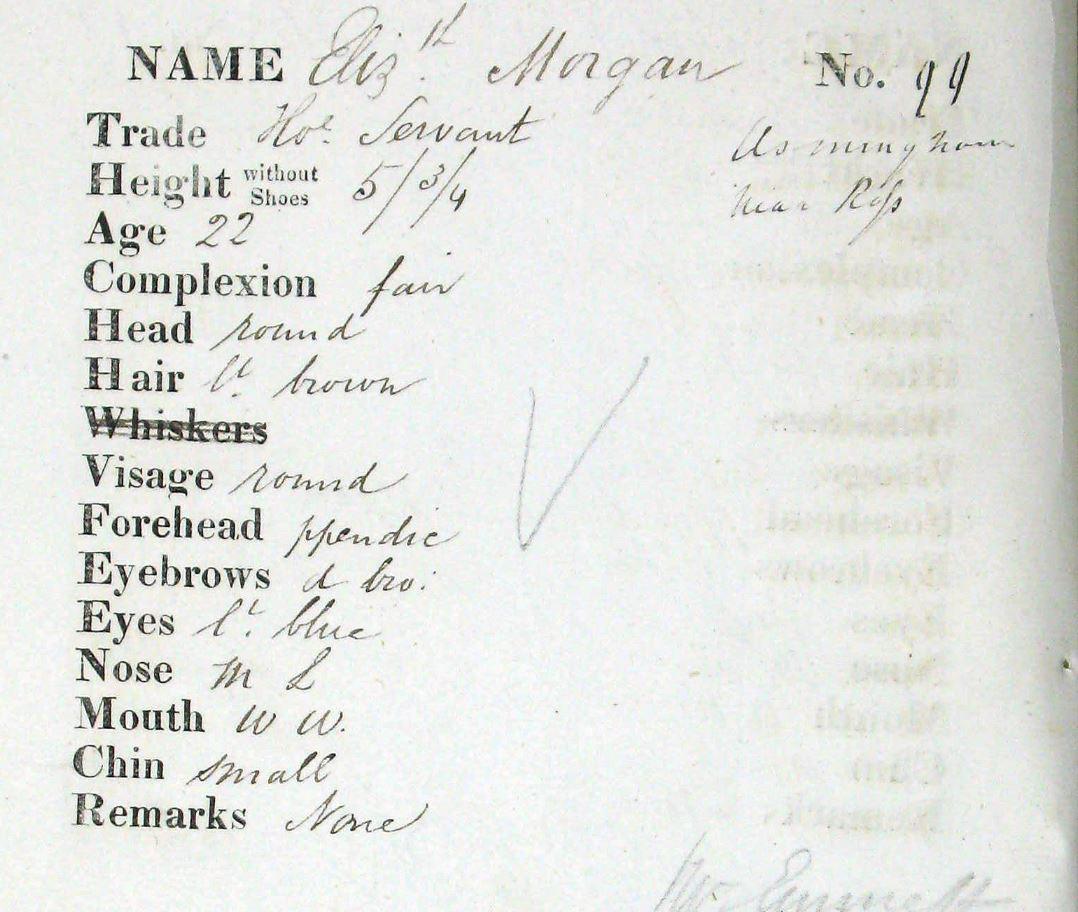 NAME Eliz.th Morgan No. 99
Trade Ho.e Servant
Asmingham
Height without Shoes 5/ 3/4
near Ross
Age 22
Complexion fair
Head round
Hair lt. brown
Whiskers
Visage round
Forehead ppendic
Eyebrows d bro.
Eyes lt. blue
Nose M L
Mouth W W.
Chin small
Remarks None
Mr.